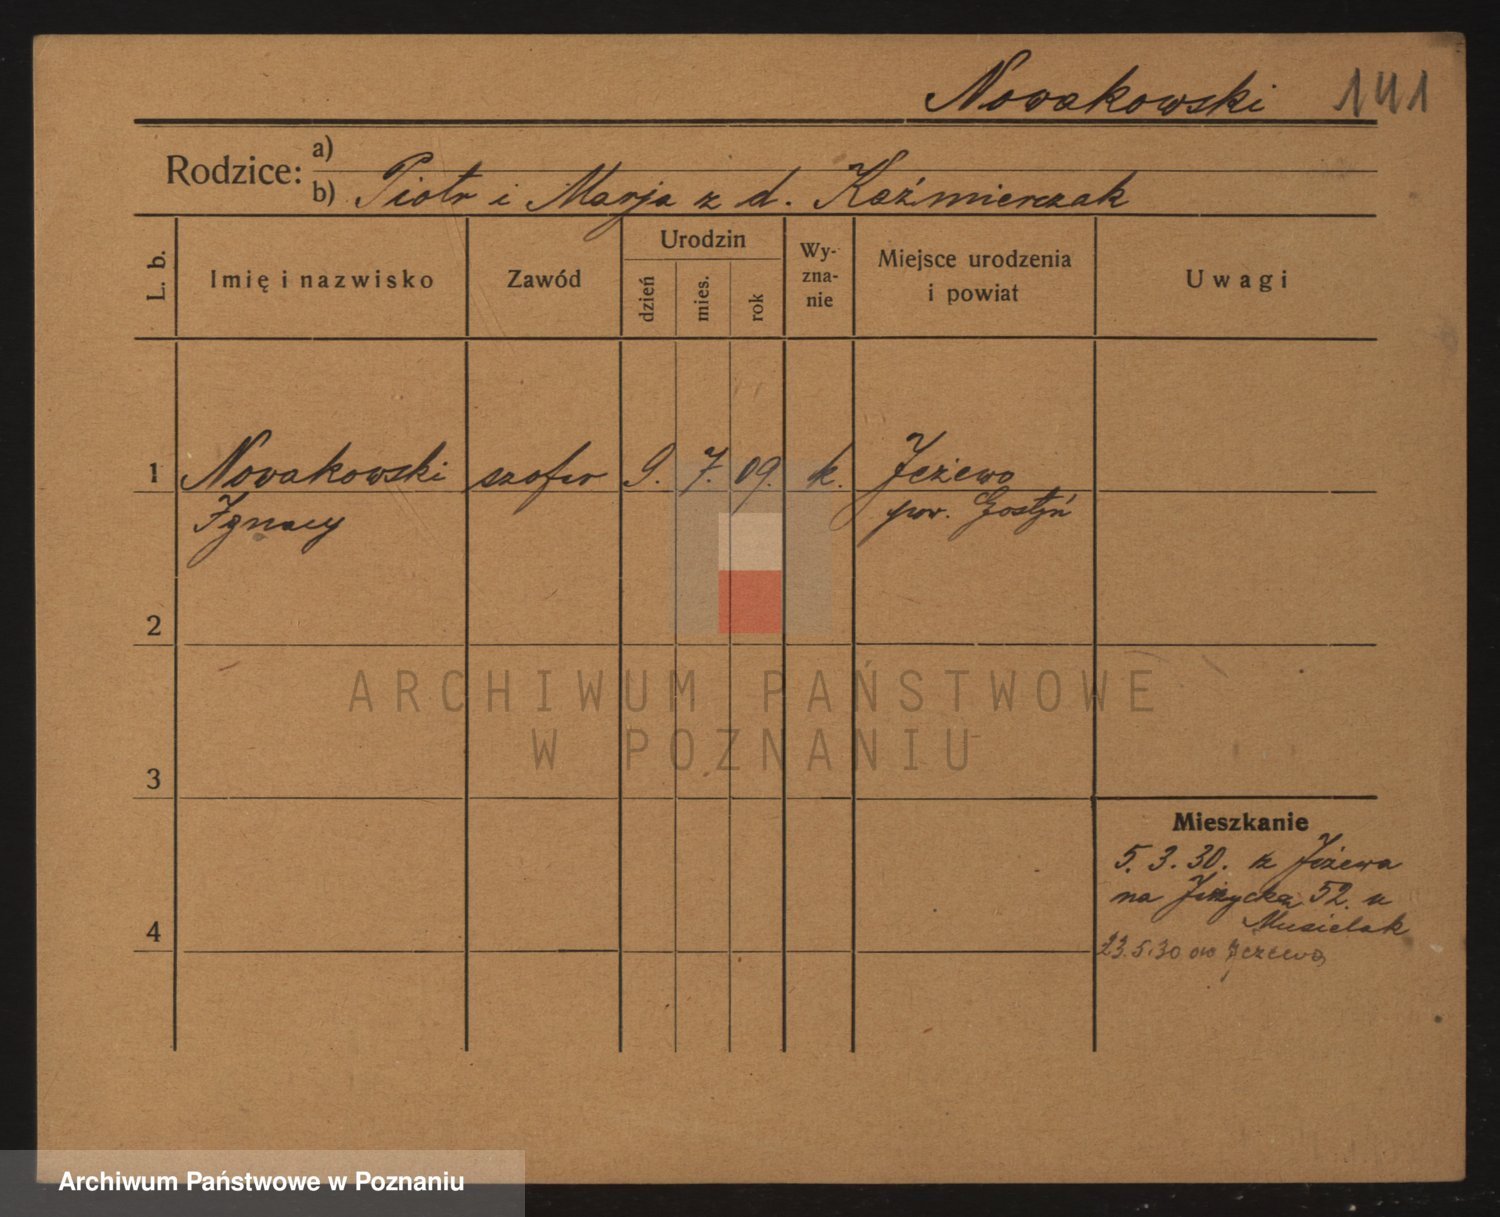 Nowakowski 141
Rodzice: a)
b) Piotr i Marja z d. Kaźmierczak
L. b.
Imię i nazwisko
Zawód
Urodzin
dzień
mies.
rok
Wy-
zna-
nie
Miejsce urodzenia
i powiat
Uwagi
1 Nowakowski szofer 9. 7. 09. k. Jeżewo
Ignacy pow. Gostyń
2
ARCHIWUM PAŃSTWOWE
W POZNANIU
3
Mieszkanie
5. 3. 30. z Jeżewa
na Jeżycka 52. u
Musielak
4
23.5.30 do Jeżewa
Archiwum Państwowe w Poznaniu